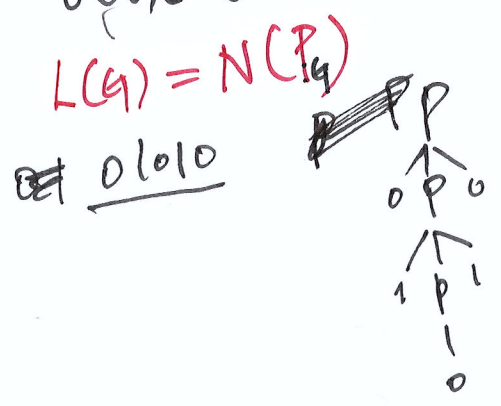 L(G) = N(P_G)
01010
P
0 P 0
1 P 1
0